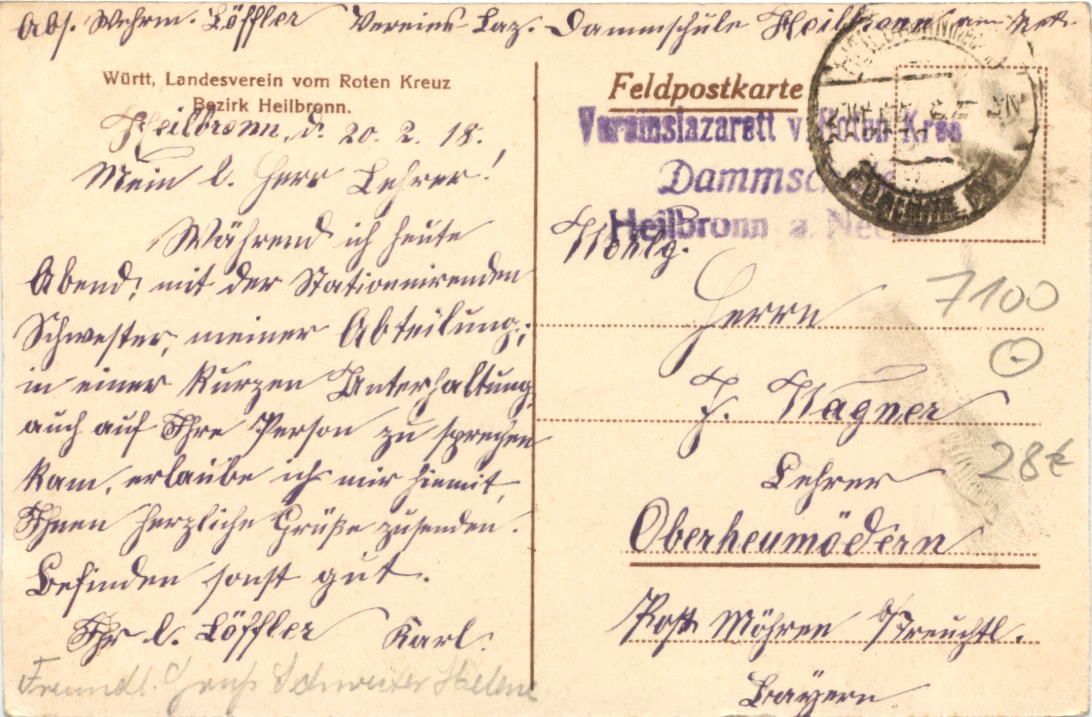 Abs. Wehrm. Löffler Vereins Laz. Dammschule Heilbronn am Nek.
Württ, Landesverein vom Roten Kreuz
Bezirk Heilbronn.
Heilbronn, d. 20. 2. 18.
Mein l. Herr Lehrer!
Während ich heute
Abend, mit der Stationnirenden
Schwester, meiner Abteilung,
in einer kurzen Unterhaltung,
auch auf Ihre Person zu sprechen
kam, erlaube ich mir hiemit,
Ihnen herzliche Grüße zusenden.
Befinden sonst gut.
Ihr l. Löffler Karl.
Freundl. Gruß Schwester Helene
Feldpostkarte
Vereinslazarett v. Roten Kreu
Dammsc
Heilbronn a. Ne
Wohlg.
Herrn
J. Wagner
Lehrer
Oberheumödern
Post Möhren b/Treuchtl.
Bayern.
7100
28€